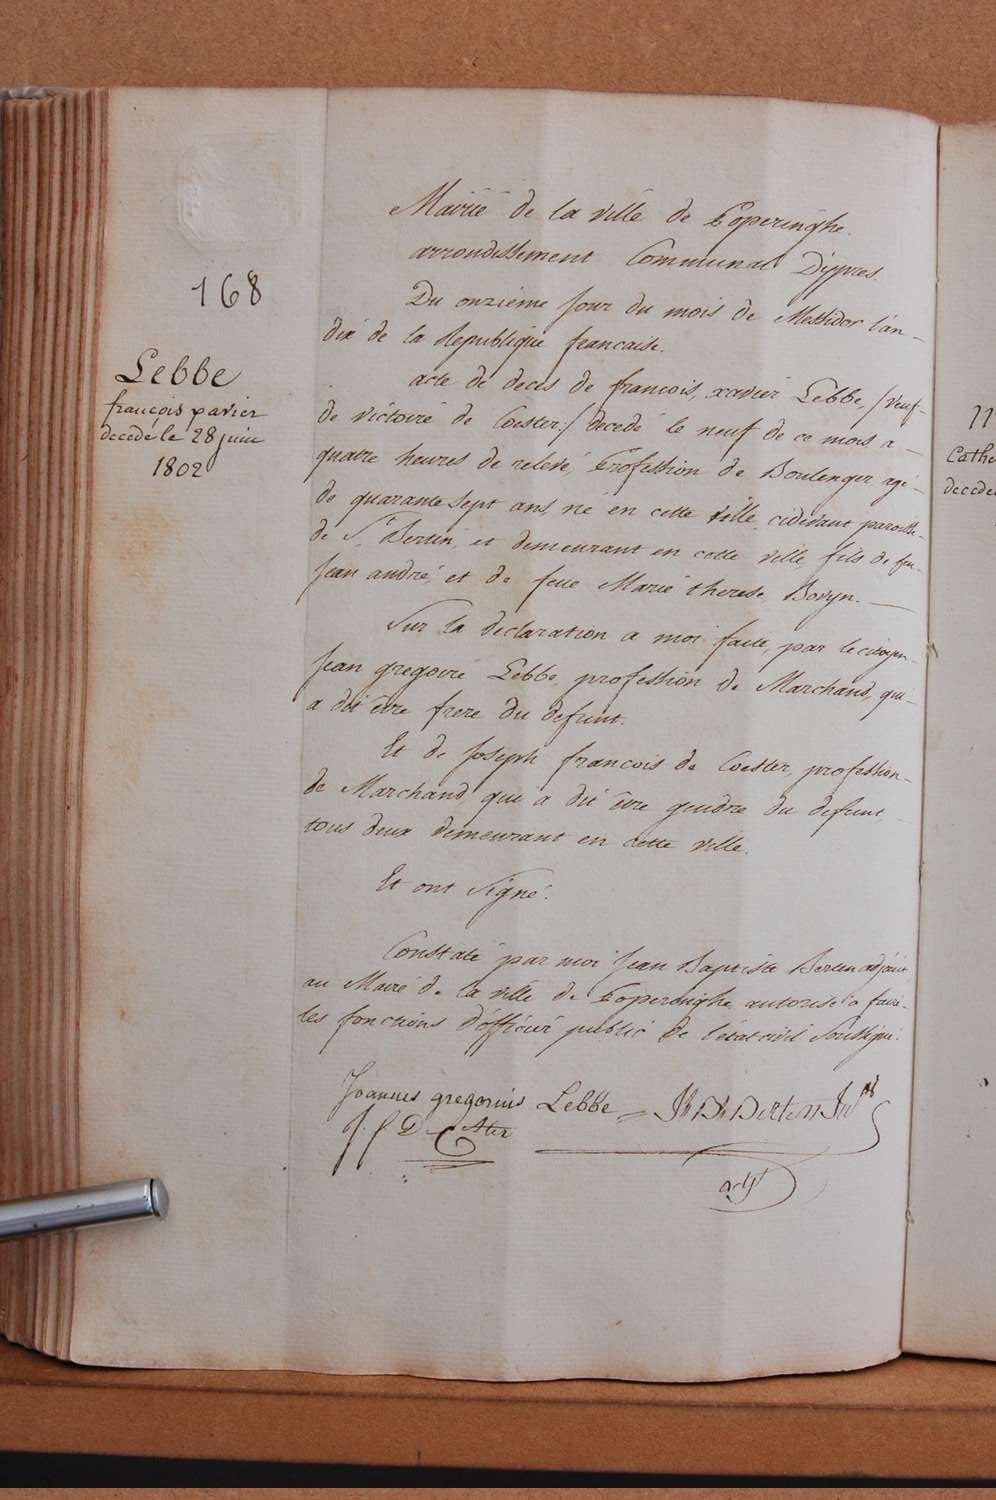 168
Lebbe
françois xavier
decedé le 28 juin
1802
Mairie de la ville de Poperinghe.
arrondissement Communal D'ypres.
Du onzieme jour du mois de Messidor l'an
dix de la Republique francaise.
acte de deces de francois, xavier Lebbe, /veuf
de victoire de Coester./ decedé le neuf de ce mois a
quatre heures de relevé, Profession de Boulenger agé
de quarante sept ans, né en cette ville, cidevant paroisse
de St. Bertin, et demeurant en cette ville, fils de feu
Jean andré, et de feue Marie therese, Bovyn.
Sur la declaration a moi faite, par le citoyen
Jean gregoire Lebbe, profession de Marchand, qui
a dit être frere du defunt.
Et de Joseph francois de Coester, profession
de Marchand, qui a dit être gendre du defunt,
tous deux demeurant en cette ville.
Et ont signé.
Constaté par moi Jean Baptiste Berten adjoint
au Maire de la ville de Poperinghe, autorisé a faire
les fonctions d'officier public de l'état civil soussigné.
Joannes gregorius Lebbe
J. f D
adjt
Cathe
decedee